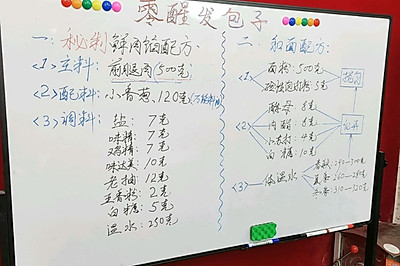 零醒发包子
一：秘制鲜肉馅配方：
<1>主料：前腿肉(500克)
<2>配料：小香葱、120克
<3>调料：盐：7克
味精：7克
鸡精：7克
味达美：10克
老抽：12克
五香粉：2克
白糖：5克
温水：250克
二：和面配方：
<1> 面粉：500克
泡打粉：5克
拌匀
<2> 酵母：8克
6克
小苏打：4克
白糖：10克
化开
<3> 低温水 春秋：290—300克
夏季：260—280克
冬季：310—320克